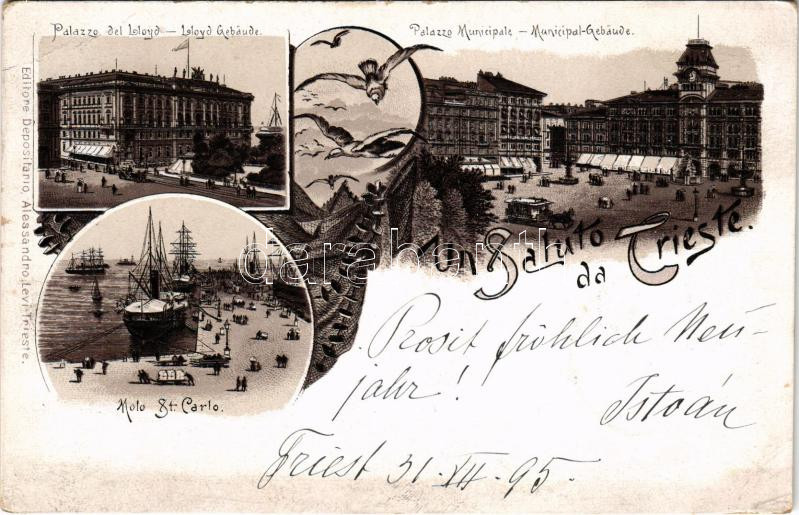 Palazzo del Lloyd – Lloyd Gebäude.
Palazzo Municipale – Municipal-Gebäude.
Editore Depositario, Alessandro Levi Trieste.
darabanth.com
Un Saluto
da Trieste.
Molo St. Carlo.
Prosit fröhlich Neu-
jahr!
István
Triest 31. XII. 95.